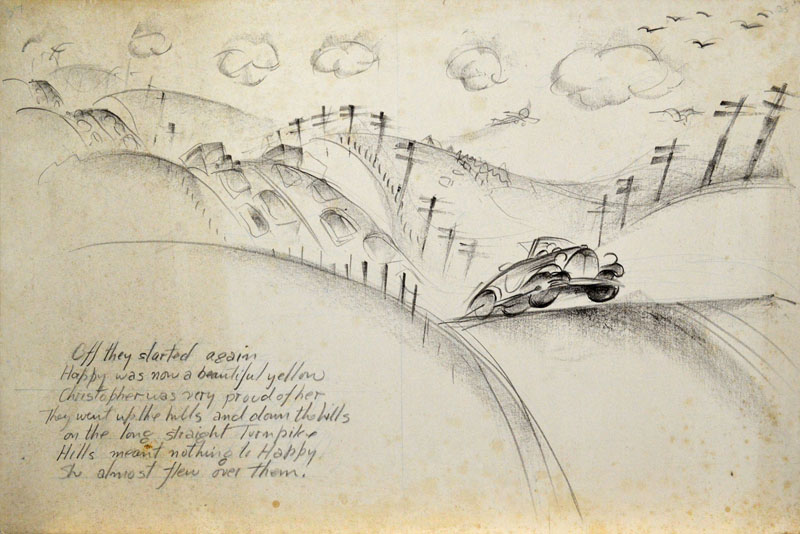 Off they started again
Happy was now a beautiful yellow
Christopher was very proud of her
They went up the hills and down the hills
on the long straight Turnpike
Hills meant nothing to Happy
She almost flew over them.